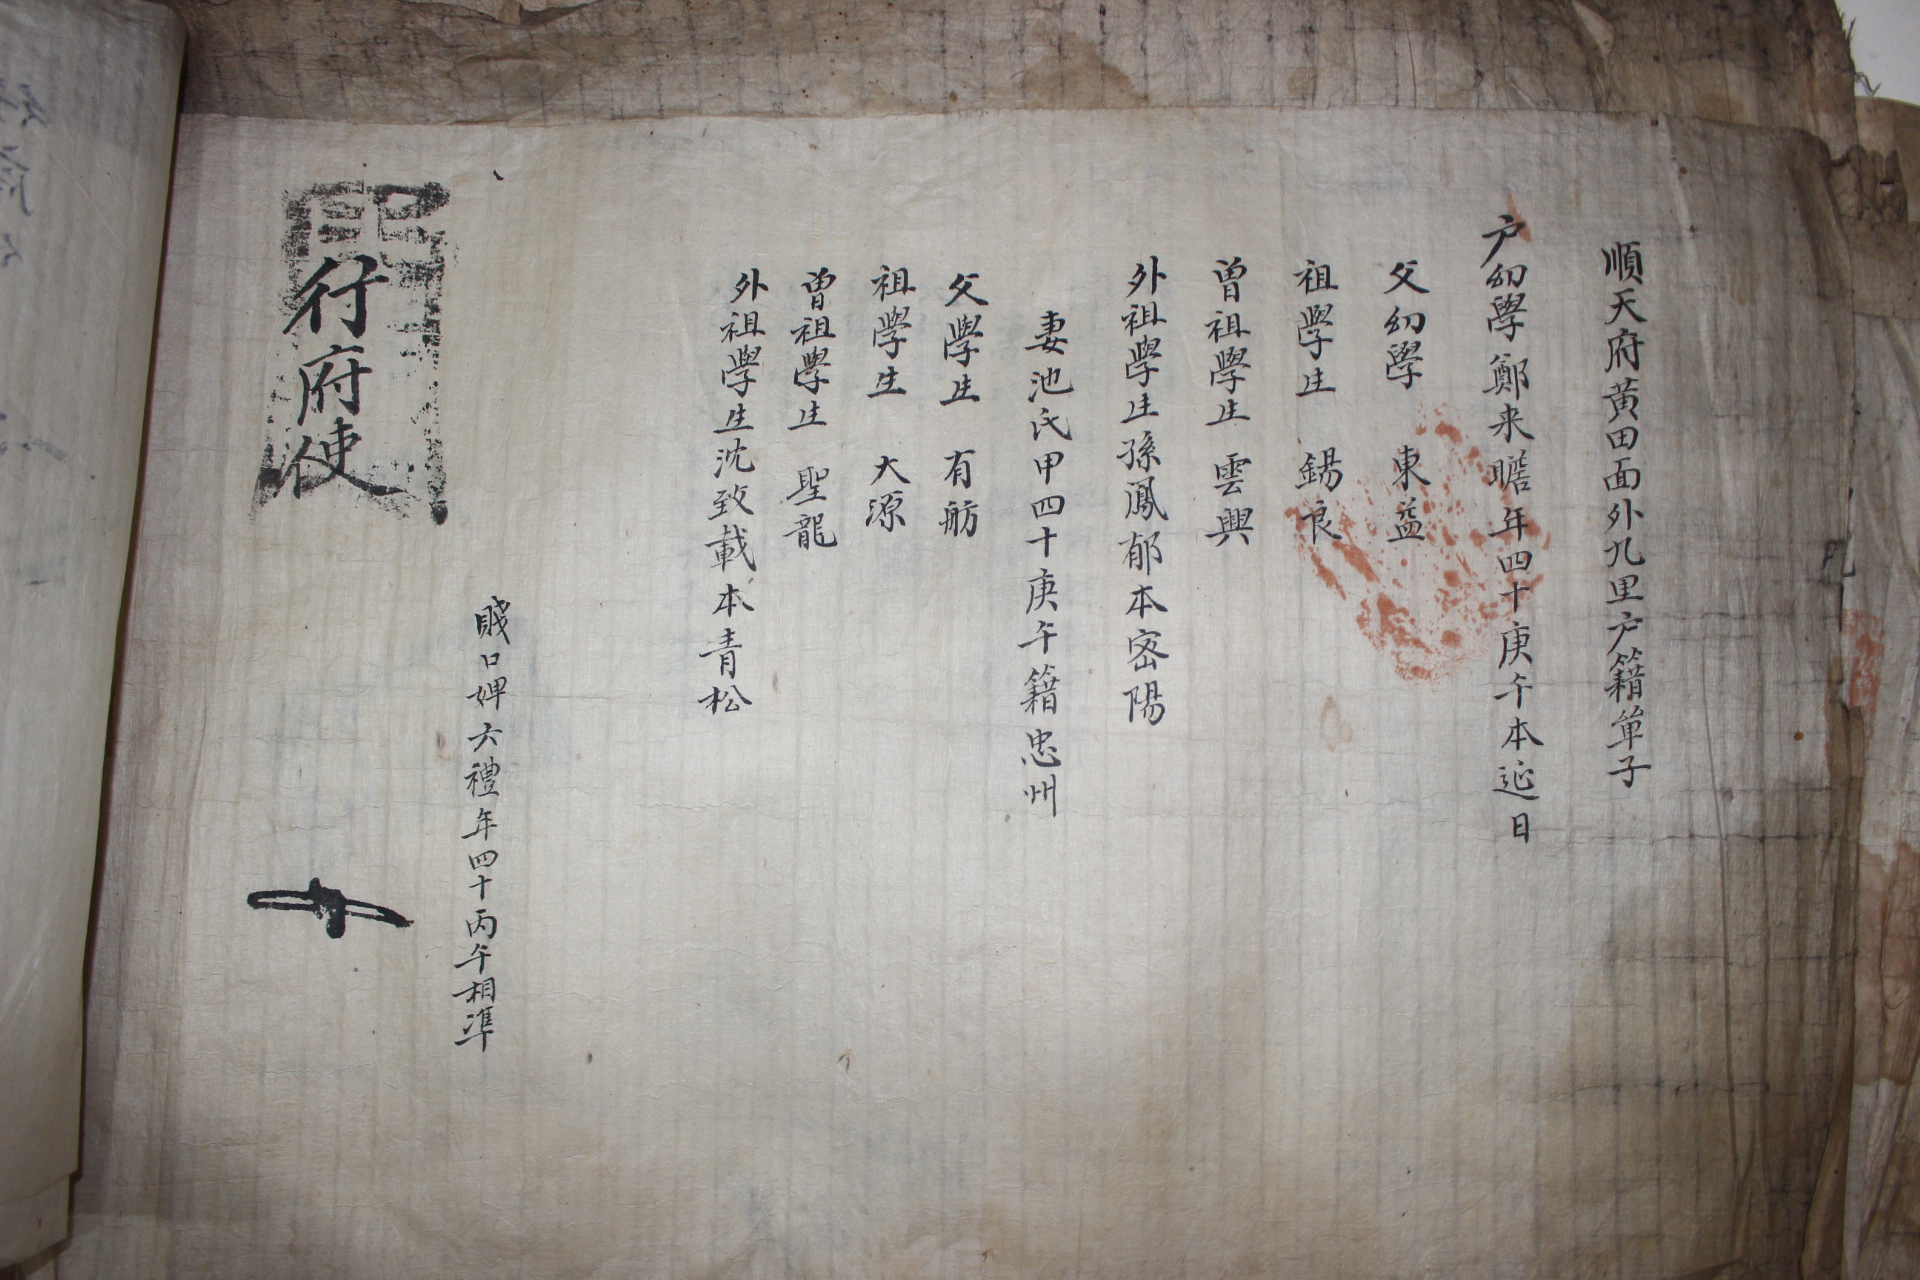 順天府黃田面外九里户籍单子
户幼學鄭来瞻年四十庚午本延日
父幼學 東益
祖學生 錫良
曾祖學生 雲興
外祖學生孫鳳郁本密陽
妻池氏甲四十庚午籍忠州
父學生 有舫
祖學生 大源
曾祖學生 聖龍
外祖學生沈致載本青松
賎口婢六禮年四十丙午相準
行府使